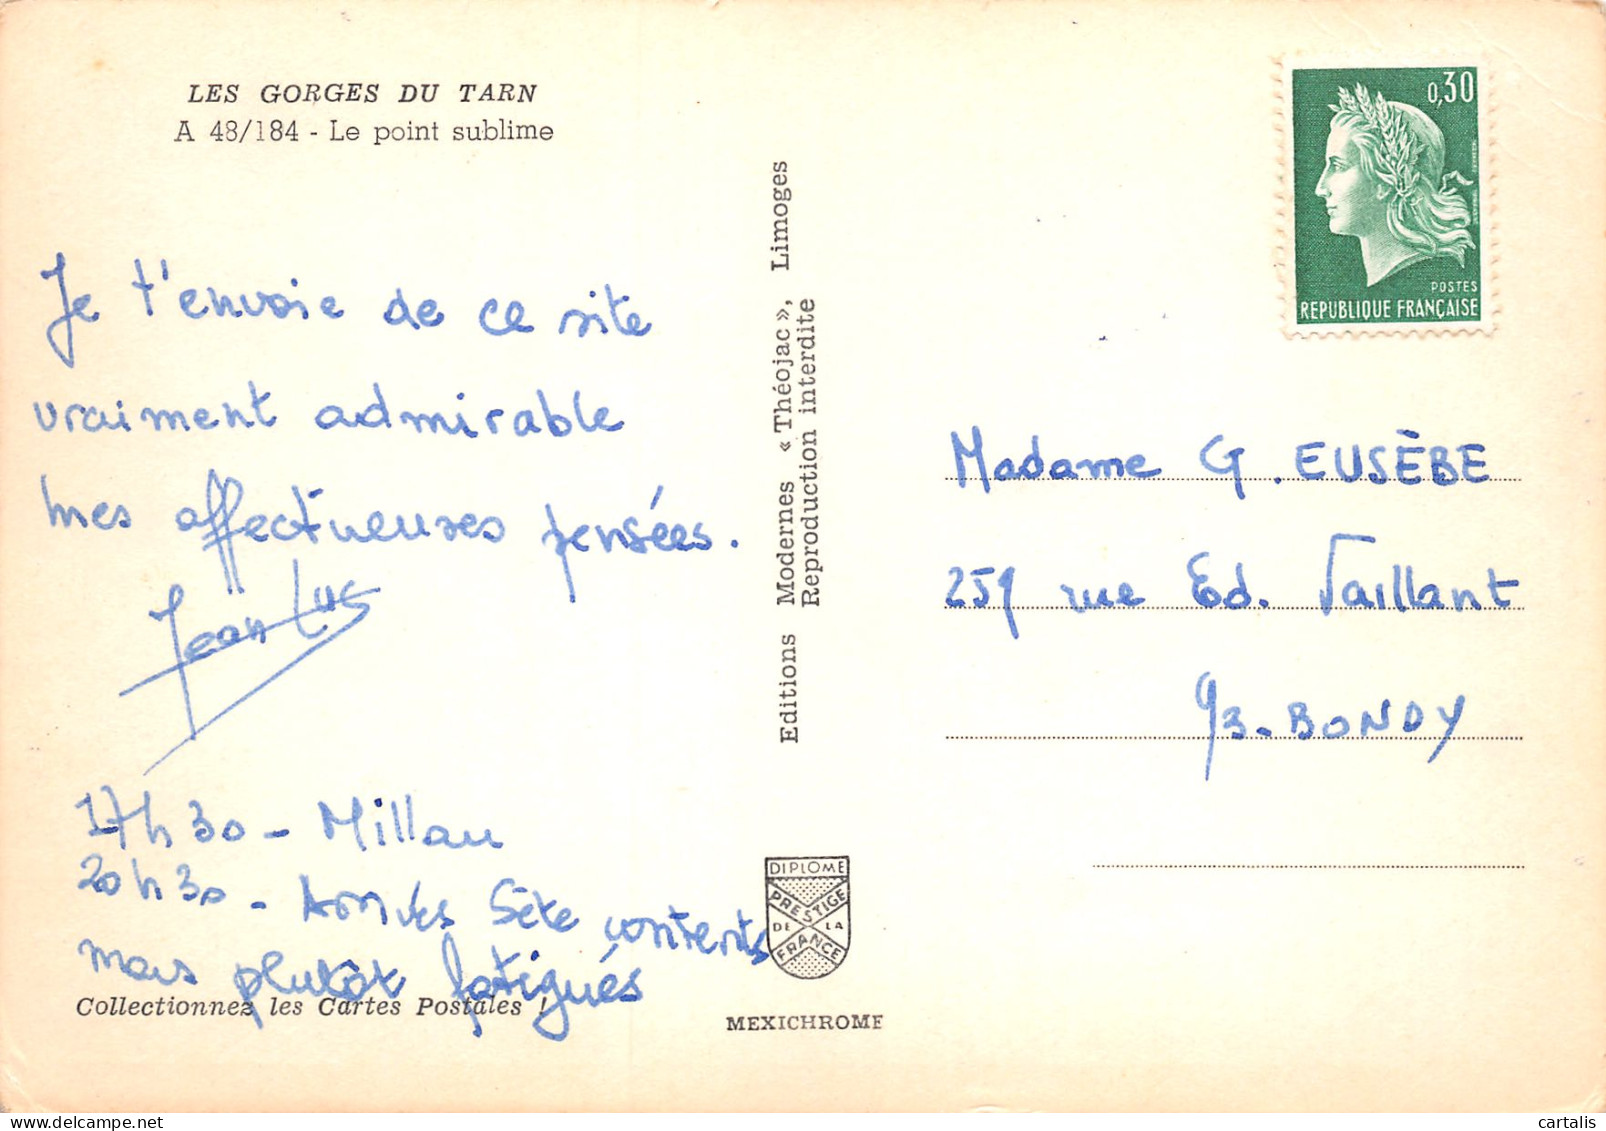 LES GORGES DU TARN
A 48/184 - Le point sublime
Je t'envoie de ce site
vraiment admirable
mes affectueuses pensées.
Jean Luc
17h30 - Millau
20h30 - Arrivés Sète contents
mais plutôt fatigués
Collectionnez les Cartes Postales !
Editions Modernes « Théojac », Limoges
Reproduction interdite
DIPLOME
PRESTIGE
DE LA
FRANCE
MEXICHROME
0,30
POSTES
REPUBLIQUE FRANÇAISE
Madame G. EUSÈBE
259 rue Ed. Vaillant
93-BONDY
cartalis